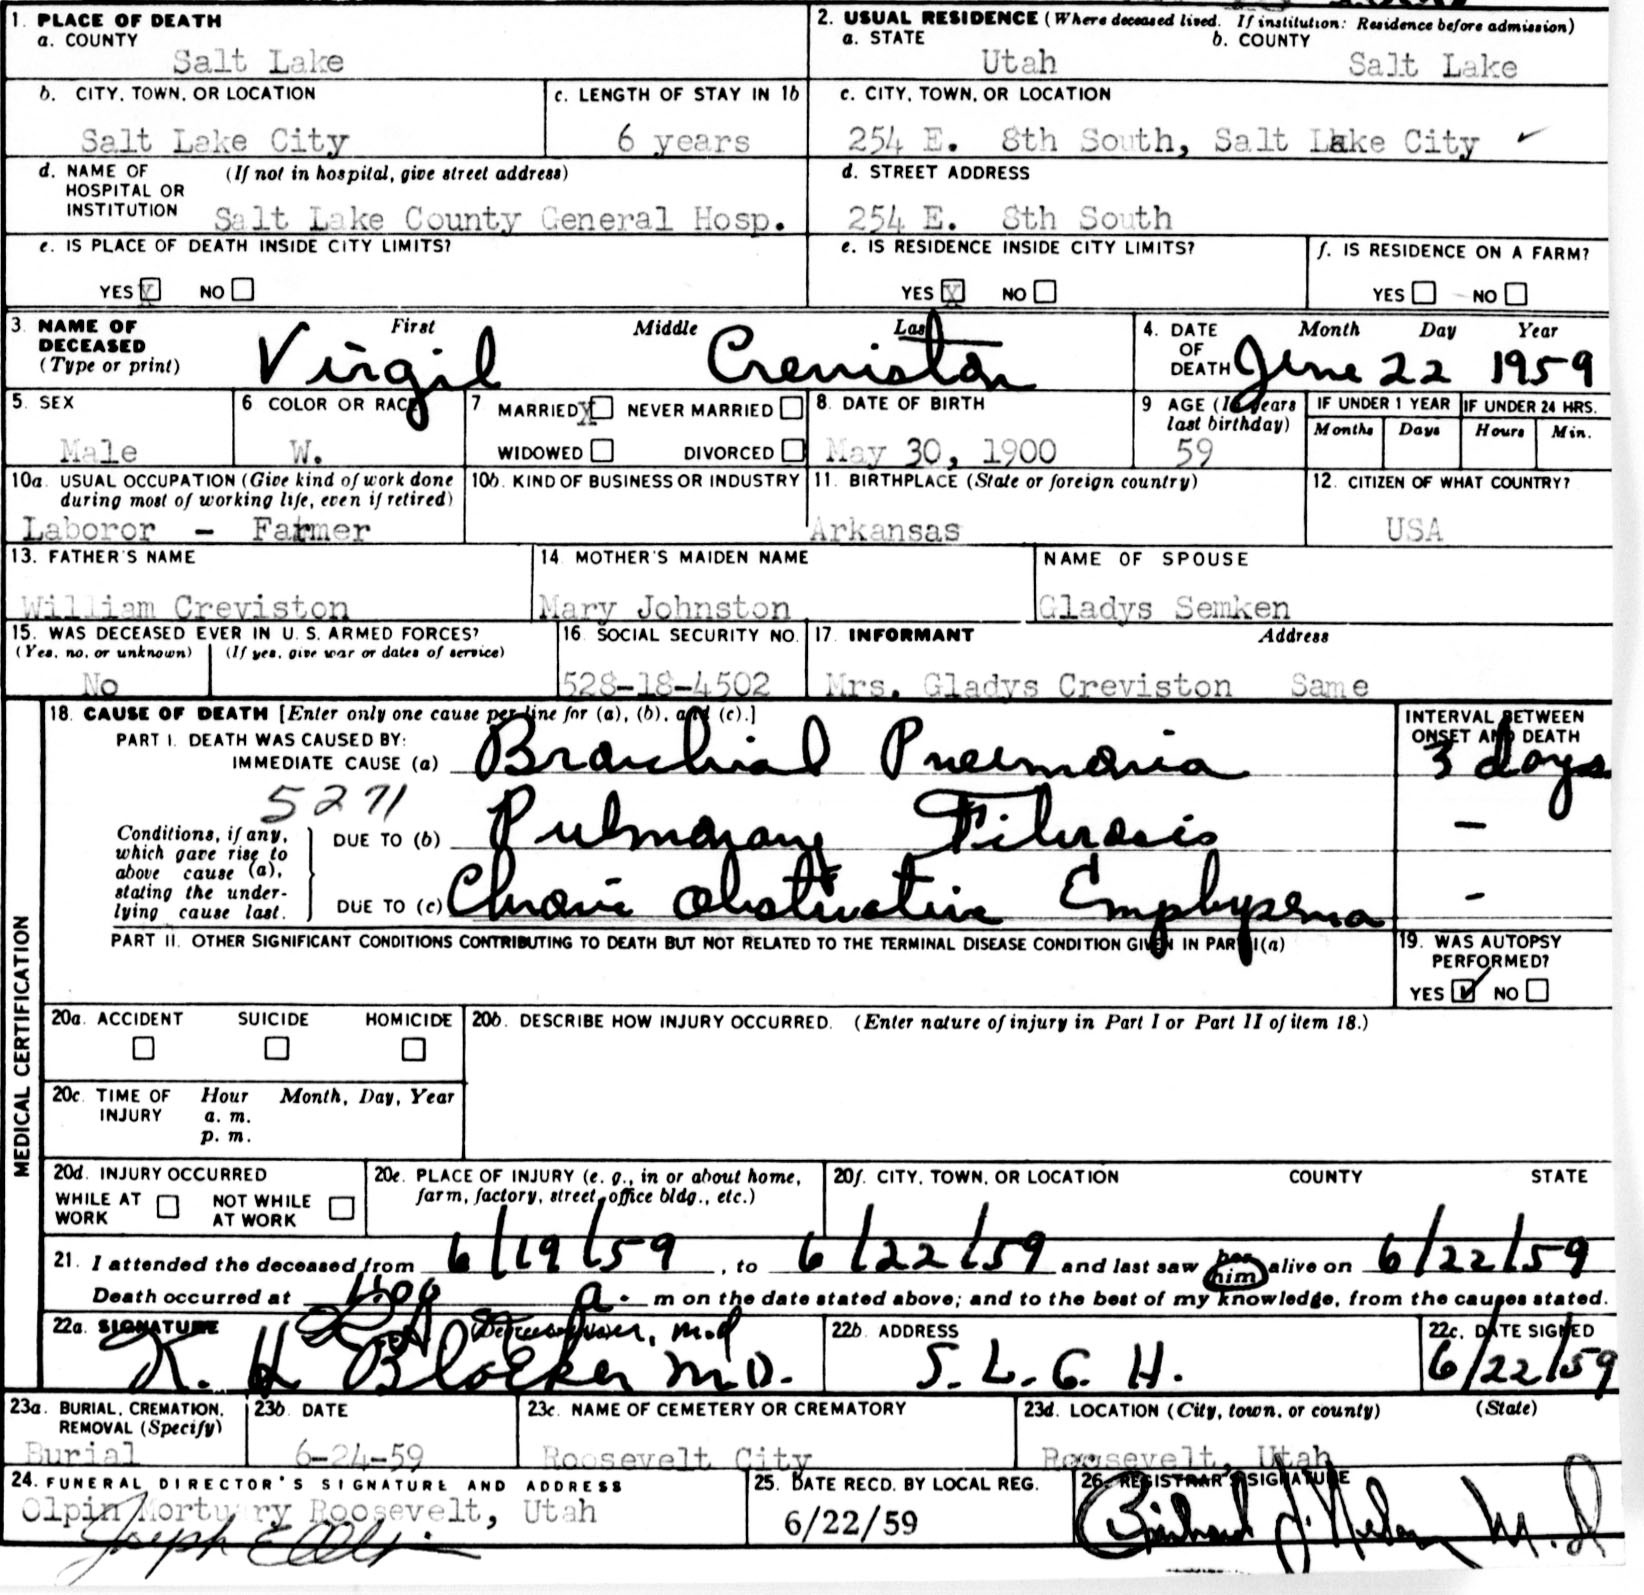 1. PLACE OF DEATH
a. COUNTY
Salt Lake
2. USUAL RESIDENCE (Where deceased lived. If institution: Residence before admission)
a. STATE b. COUNTY
Utah Salt Lake
b. CITY, TOWN, OR LOCATION
Salt Lake City
c. LENGTH OF STAY IN 1b
6 years
c. CITY, TOWN, OR LOCATION
254 E. 8th South, Salt Lake City
d. NAME OF (If not in hospital, give street address)
HOSPITAL OR
INSTITUTION Salt Lake County General Hosp.
d. STREET ADDRESS
254 E. 8th South
e. IS PLACE OF DEATH INSIDE CITY LIMITS?
YES X NO
e. IS RESIDENCE INSIDE CITY LIMITS?
YES X NO
f. IS RESIDENCE ON A FARM?
YES NO
3. NAME OF First Middle Last
DECEASED
(Type or print) Virgil Creviston
4. DATE Month Day Year
OF
DEATH June 22 1959
5. SEX
Male
6 COLOR OR RACE
W.
7 MARRIED X NEVER MARRIED
WIDOWED DIVORCED
8. DATE OF BIRTH
May 30, 1900
9 AGE (In years
last birthday)
59
IF UNDER 1 YEAR IF UNDER 24 HRS.
Months Days Hours Min.
10a. USUAL OCCUPATION (Give kind of work done
during most of working life, even if retired)
Laboror - Farmer
10b. KIND OF BUSINESS OR INDUSTRY
11. BIRTHPLACE (State or foreign country)
Arkansas
12. CITIZEN OF WHAT COUNTRY?
USA
13. FATHER'S NAME
William Creviston
14. MOTHER'S MAIDEN NAME
Mary Johnston
NAME OF SPOUSE
Gladys Semken
15. WAS DECEASED EVER IN U. S. ARMED FORCES?
(Yes, no, or unknown) (If yes, give war or dates of service)
No
16. SOCIAL SECURITY NO.
528-18-4502
17. INFORMANT Address
Mrs. Gladys Creviston Same
MEDICAL CERTIFICATION
18. CAUSE OF DEATH [Enter only one cause per line for (a), (b), and (c).]
PART I. DEATH WAS CAUSED BY:
IMMEDIATE CAUSE (a) Bronchial Pneumonia
INTERVAL BETWEEN
ONSET AND DEATH
3 days
5271
Conditions, if any,
which gave rise to
above cause (a),
stating the under-
lying cause last.
DUE TO (b) Pulmonary Fibrosis -
DUE TO (c) Chronic obstructive Emphysema -
PART II. OTHER SIGNIFICANT CONDITIONS CONTRIBUTING TO DEATH BUT NOT RELATED TO THE TERMINAL DISEASE CONDITION GIVEN IN PART I(a)
19. WAS AUTOPSY
PERFORMED?
YES ✓ NO
20a. ACCIDENT SUICIDE HOMICIDE
20b. DESCRIBE HOW INJURY OCCURRED. (Enter nature of injury in Part I or Part II of item 18.)
20c. TIME OF Hour Month, Day, Year
INJURY a. m.
p. m.
20d. INJURY OCCURRED
WHILE AT NOT WHILE
WORK AT WORK
20e. PLACE OF INJURY (e. g., in or about home,
farm, factory, street, office bldg., etc.)
20f. CITY, TOWN, OR LOCATION COUNTY STATE
21. I attended the deceased from 6/19/59, to 6/22/59 and last saw her him alive on 6/22/59
Death occurred at a. m on the date stated above; and to the best of my knowledge, from the causes stated.
22a. SIGNATURE m.d
K. H Blocker M.D.
22b. ADDRESS
S. L. G. H.
22c. DATE SIGNED
6/22/59
23a. BURIAL, CREMATION,
REMOVAL (Specify)
Burial
23b. DATE
6-24-59
23c. NAME OF CEMETERY OR CREMATORY
Roosevelt City
23d. LOCATION (City, town, or county) (State)
Roosevelt, Utah
24. FUNERAL DIRECTOR'S SIGNATURE AND ADDRESS
Olpin Mortuary Roosevelt, Utah
Joseph E Olpin
25. DATE RECD. BY LOCAL REG.
6/22/59
26. REGISTRAR'S SIGNATURE
M. D